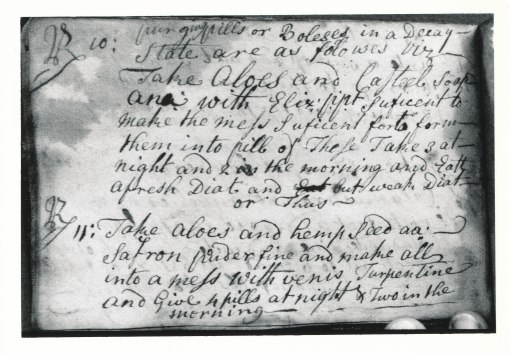 ℞ 10: purging pills or Boleses in a Decay
State are as folowes Viz
Take Aloes and Casteel Soap
ana with Elix: ppt suficent to
make the mess suficent for to form
them into pills of These Take 3 at
night and 2 in the morning and Eatt
afresh Diate and but weak Diat
or Thus
℞ 11: Take aloes and hemp seed aa:
Safron puder fine and make all
into a mess with venis Turpentine
and Give 4 pills at night & Two in the
morning